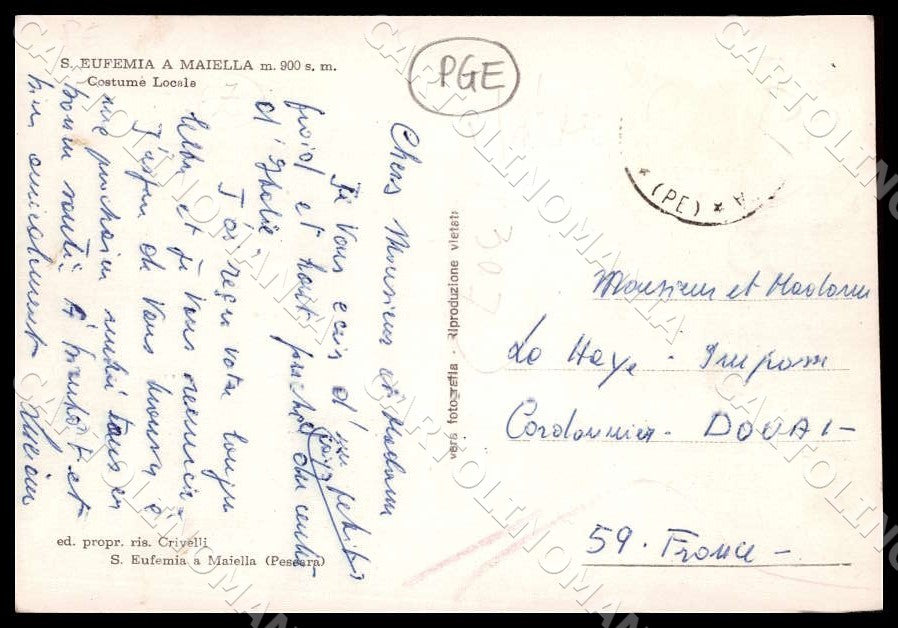 S. EUFEMIA A MAIELLA m. 900 s. m.
Costume Locale
PGE
* (PE) * A
307
Chers Monsieur et Madame
Je Vous ecris d'un petit
pays
froid et haut pres du centre
d'Italie.
J'ai reçu votre longue
lettre et je Vous remercie.
J'espère de Vous trouver à
mi prochain tous en
bonne santé. A bientôt et
bien amicalement
vera fotografia - Riproduzione vietata
Monsieur et Madame
La Haye - Impasse
Cordonnier - DOUAI -
59 - France -
ed. propr. ris. Crivelli
S. Eufemia a Maiella (Pescara)
CARTOLINOMANIA